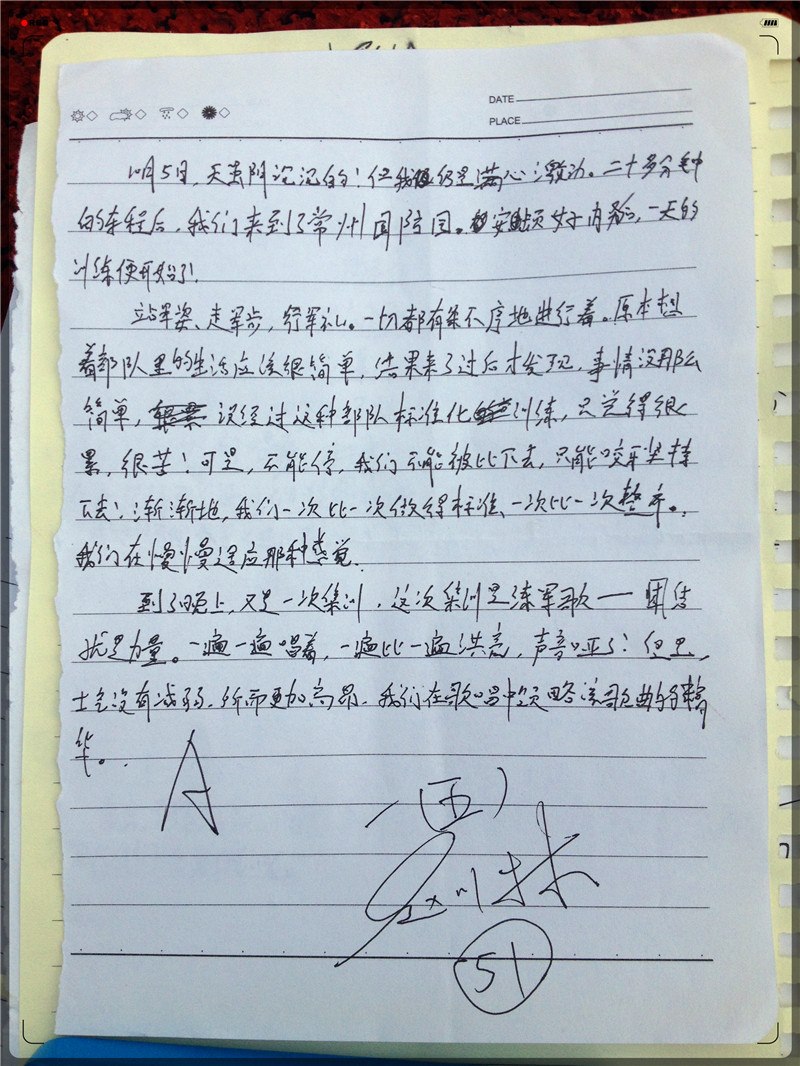 DATE
PLACE
10月5日，天气阴沉沉的！但我仍是满心激动。二十多分钟
的车程后，我们来到了常州国防园。安顿好内务，一天的
训练便开始了！
站军姿、走军步，行军礼。一切都有条不序地进行着。原本想
着部队里的生活应该很简单，结果来了过后才发现，事情没那么
简单，没经过这种部队标准化训练，只觉得很
累，很苦！可是，不能停，我们不能被比下去，只能咬牙坚持
下去！渐渐地，我们一次比一次做得标准、一次比一次整齐。
我们在慢慢适应那种感觉。
到了晚上，又是一次集训，这次集训是练军歌——团结
就是力量。一遍一遍唱着，一遍比一遍洪亮，声音哑了！但是，
士气没有减弱，反而更加高昂，我们在歌唱中领略该歌曲的精
华。
A
一(五)
51